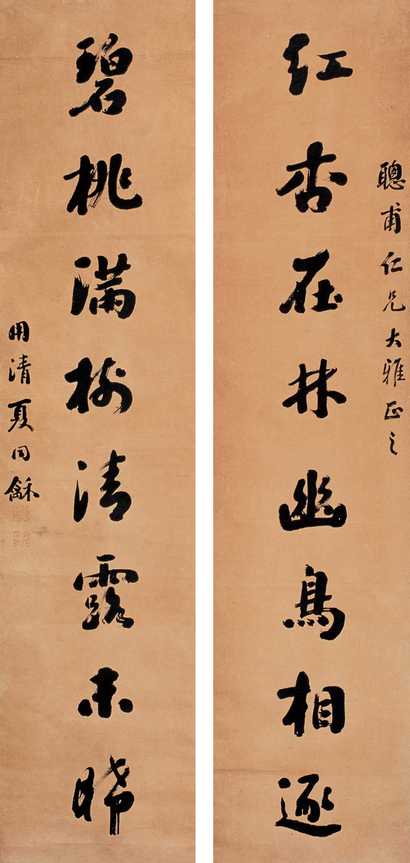 聰甫仁兄大雅正之
红杏在林幽鳥相逐
碧桃满樹清露未晞
用清夏同龢